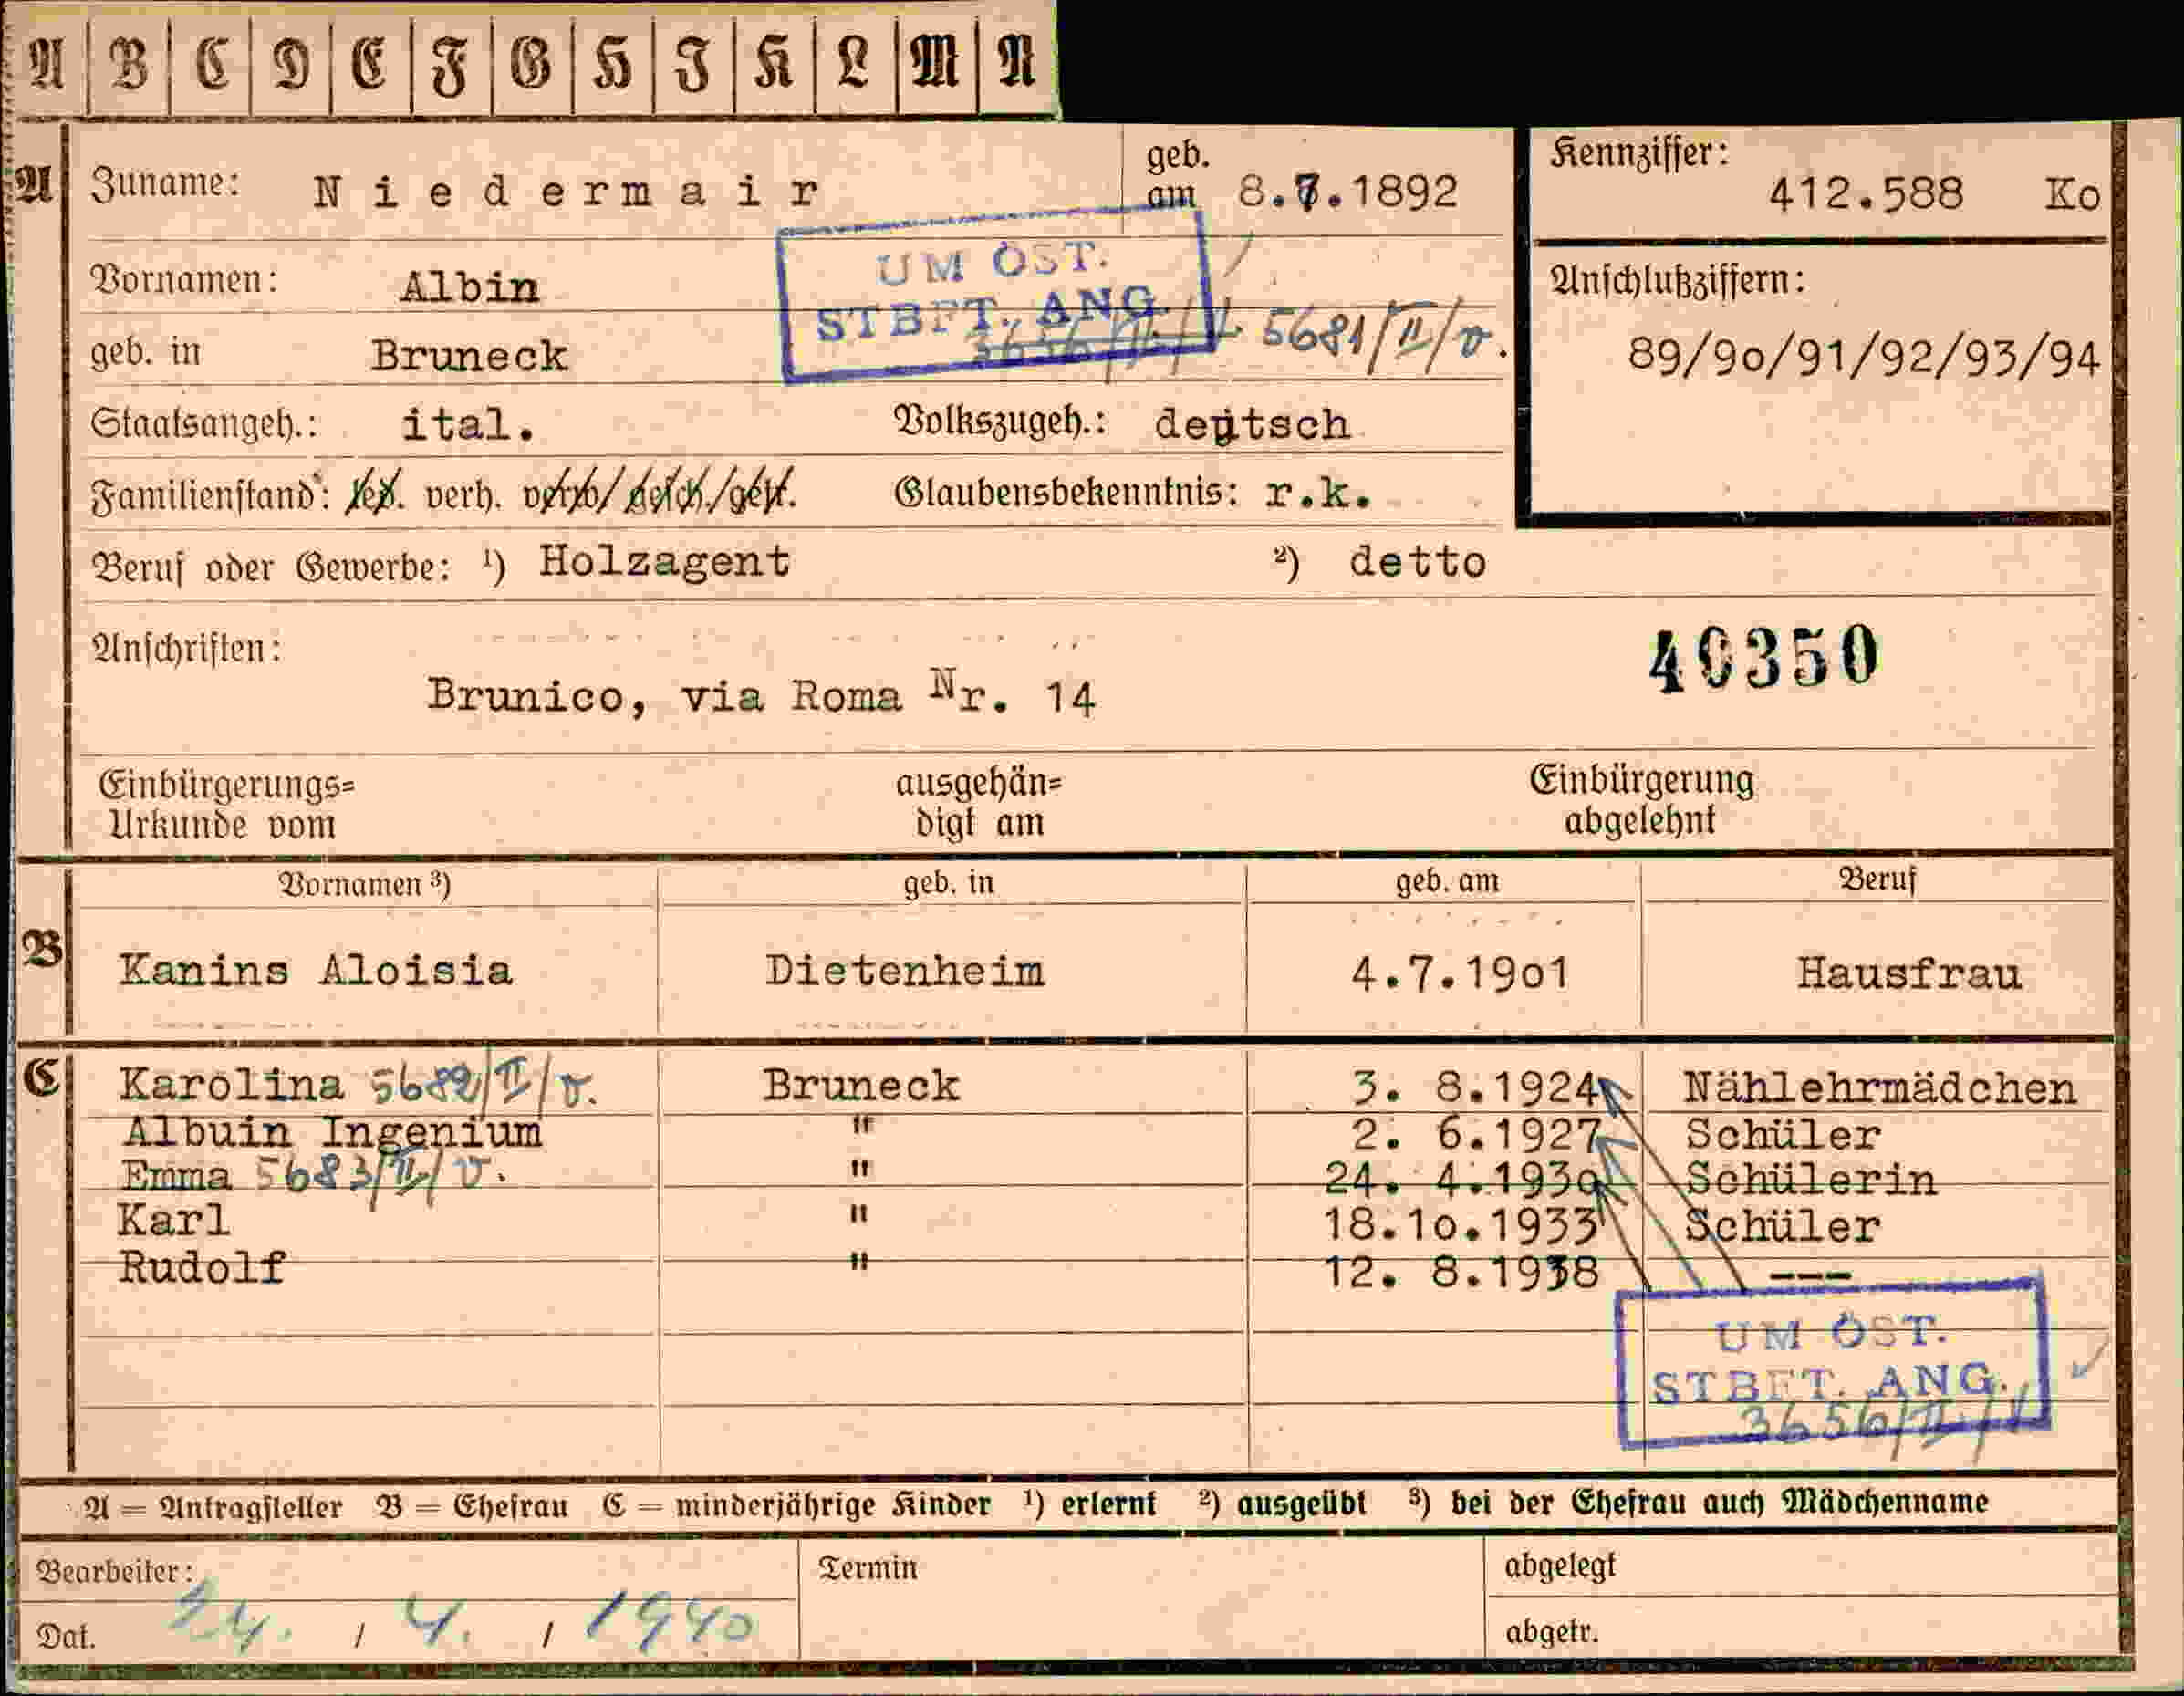 A B C D E F G H I K L M N
A Zuname: Niedermair geb. am 8.7.1892 Kennziffer: 412.588 Ko
UM ÖST.
Vornamen: Albin Anschlußziffern:
STBFT. ANG.
geb. in Bruneck 5681/II/V. 89/9o/91/92/93/94
Staatsangeh.: ital. Volkszugeh.: deutsch
Familienstand: led. verh. verw/gesch./getr. Glaubensbekenntnis: r.k.
Beruf oder Gewerbe: ¹) Holzagent ²) detto
Anschriften: 40350
Brunico, via Roma Nr. 14
Einbürgerungs= ausgehän= Einbürgerung
Urkunde vom digt am abgelehnt
Vornamen ³) geb. in geb. am Beruf
B Kanins Aloisia Dietenheim 4.7.19o1 Hausfrau
C Karolina 5682/II/V. Bruneck 3. 8.1924 Nählehrmädchen
Albuin Ingenium " 2. 6.1927 Schüler
Emma 5683/II/V. " 24. 4.193o Schülerin
Karl " 18.1o.1933 Schüler
Rudolf " 12. 8.1938 ---
UM ÖST.
STBFT. ANG.
3656/II/
A = Antragsteller B = Ehefrau C = minderjährige Kinder ¹) erlernt ²) ausgeübt ³) bei der Ehefrau auch Mädchenname
Bearbeiter: Termin abgelegt
Dat. 24. / 4. / 1940 abgetr.